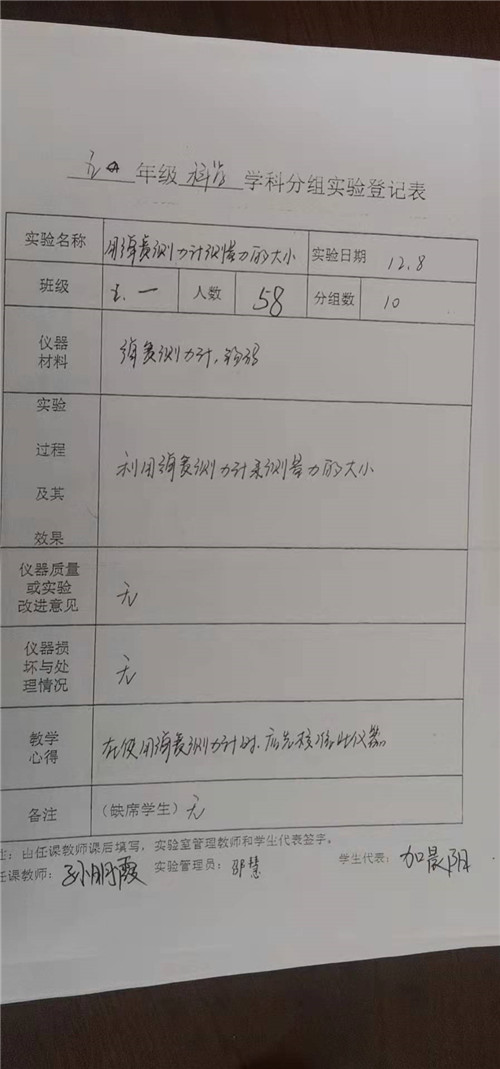 年级 科学 学科分组实验登记表
实验名称 用弹簧测力计测量力的大小 实验日期 12.8
班级 一 人数 58 分组数 10
仪器材料 弹簧测力计、钩码
实验
过程
及其
效果
利用弹簧测力计来测量力的大小
仪器质量
或实验
改进意见
无
仪器损
坏与处
理情况
无
教学
心得
在使用弹簧测力计时，应先校准此仪器。
备注 (缺席学生) 无
注：由任课教师课后填写，实验室管理教师和学生代表签字。
任课教师：孙明霞 实验管理员：邵慧 学生代表：加晨阳